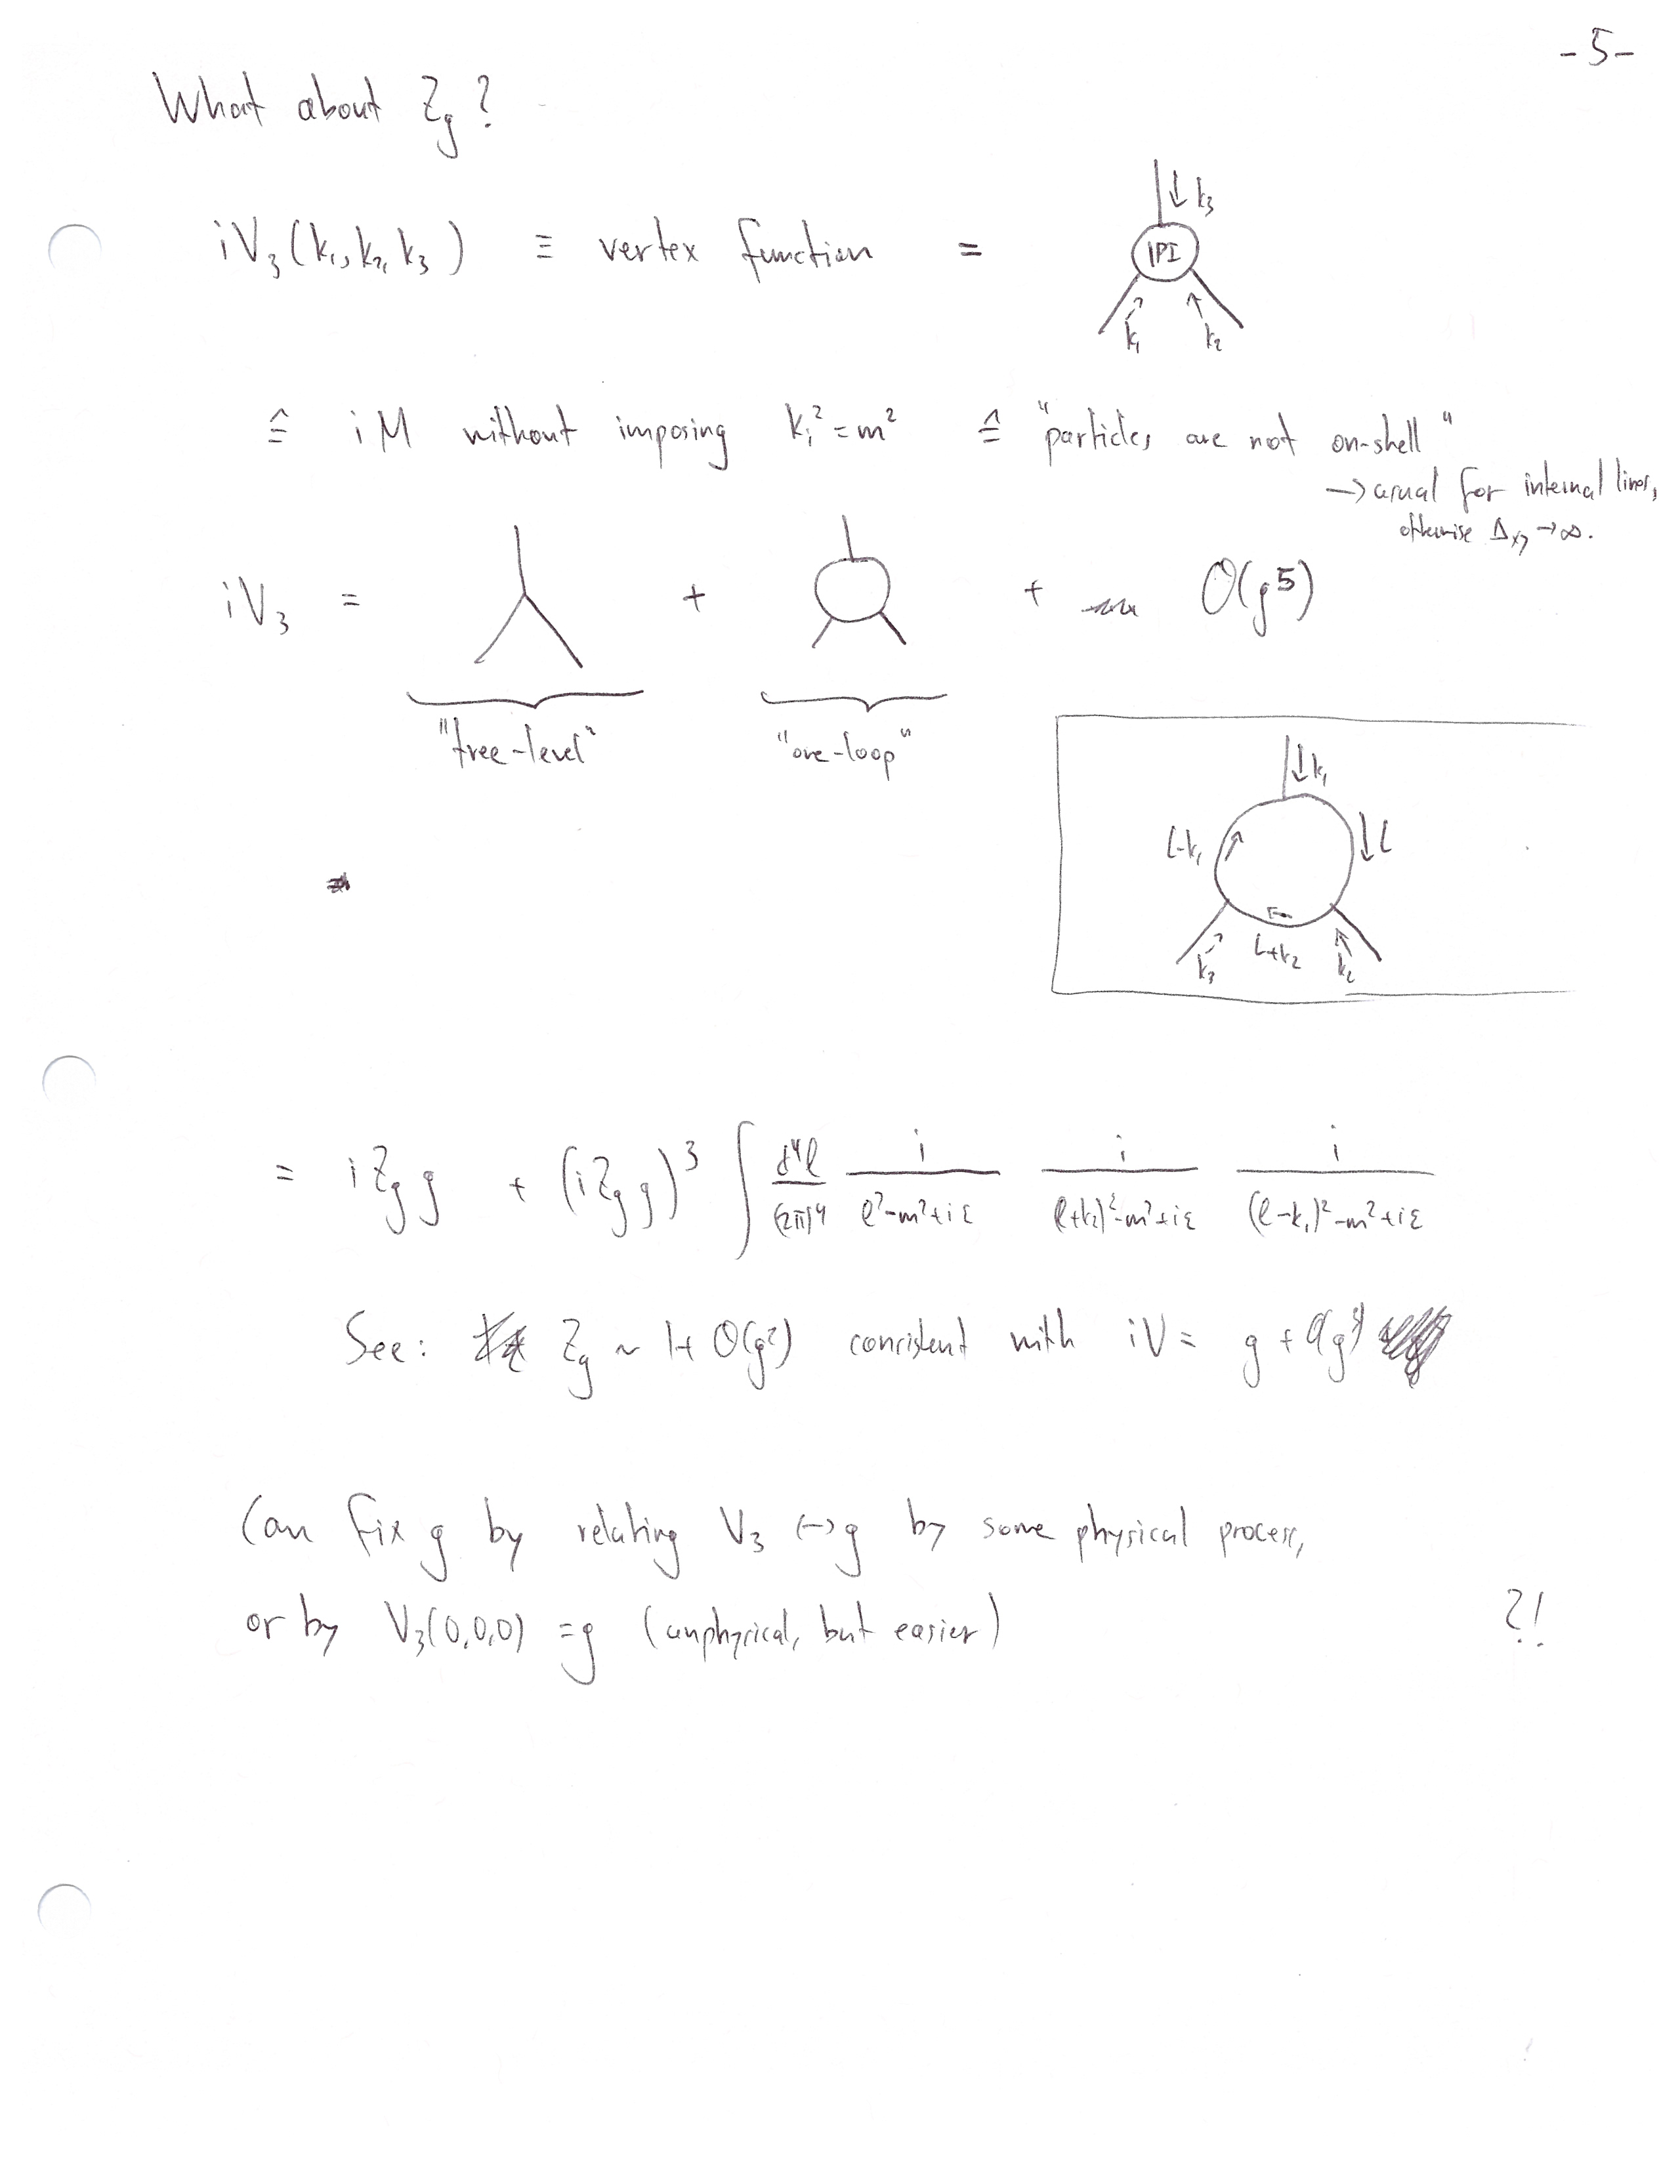 -5-
What about Z_g?
↓ k_3
iV_3(k_1, k_2, k_3) ≡ vertex function = 1PI
k_1 k_2
≙ iM without imposing k_i^2 = m^2 ≙ "particles are not on-shell"
→ usual for internal lines,
otherwise Δ_xy → ∞.
iV_3 = + + O(g^5)
"tree-level" "one-loop"
↓ k_1
l-k_1 ↓ l
k_3 l+k_2 k_2
= i Z_g g + (i Z_g g)^3 ∫ d^4l/(2π)^4 i/(l^2-m^2+iε) i/(l+k_2)^2-m^2+iε i/((l-k_1)^2-m^2+iε)
See: Z_g ~ 1+ O(g^2) consistent with iV = g + O(g^3)
Can fix g by relating V_3 ↔ g by some physical process,
or by V_3(0,0,0) = g (unphysical, but easier) ?!